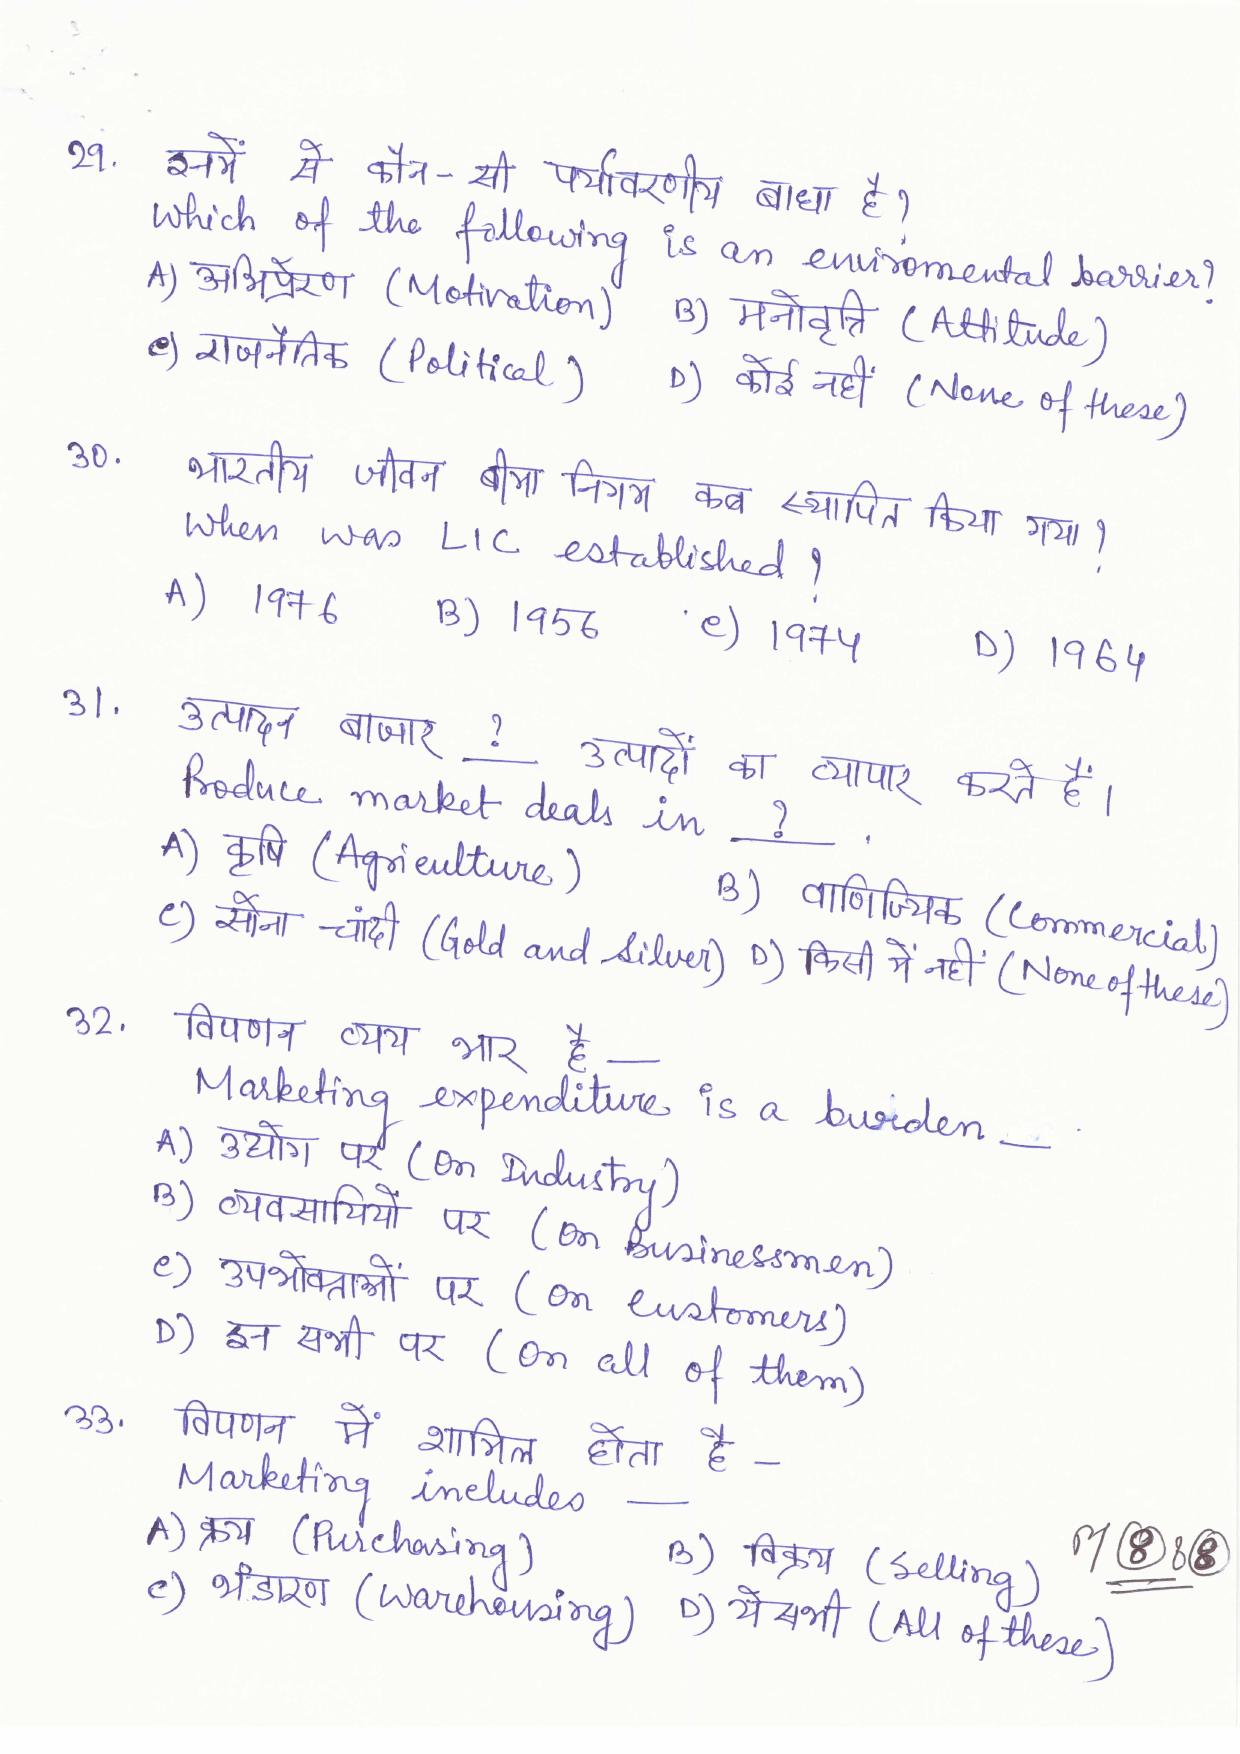 29. इनमें से कौन-सी पर्यावरणीय बाधा है?
Which of the following is an enviromental barrier?
A) अभिप्रेरण (Motivation) B) मनोवृत्ति (Attitude)
C) राजनैतिक (Political) D) कोई नहीं (None of these)
30. भारतीय जीवन बीमा निगम कब स्थापित किया गया?
When was LIC established?
A) 1976 B) 1956 C) 1974 D) 1964
31. उत्पादन बाजार __?__ उत्पादों का व्यापार करते हैं।
Produce market deals in __?__.
A) कृषि (Agriculture) B) वाणिज्यिक (Commercial)
C) सोना-चांदी (Gold and Silver) D) किसी में नहीं (None of these)
32. विपणन व्यय भार है —
Marketing expenditure is a burden —
A) उद्योग पर (On Industry)
B) व्यवसायियों पर (On Businessmen)
C) उपभोक्ताओं पर (On customers)
D) इन सभी पर (On all of them)
33. विपणन में शामिल होता है —
Marketing includes —
A) क्रय (Purchasing) B) विक्रय (Selling)
C) भंडारण (Warehousing) D) ये सभी (All of these)